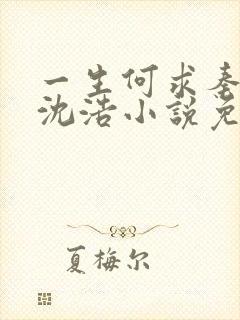 一生何求秦
沈浩小說免
夏梅尔